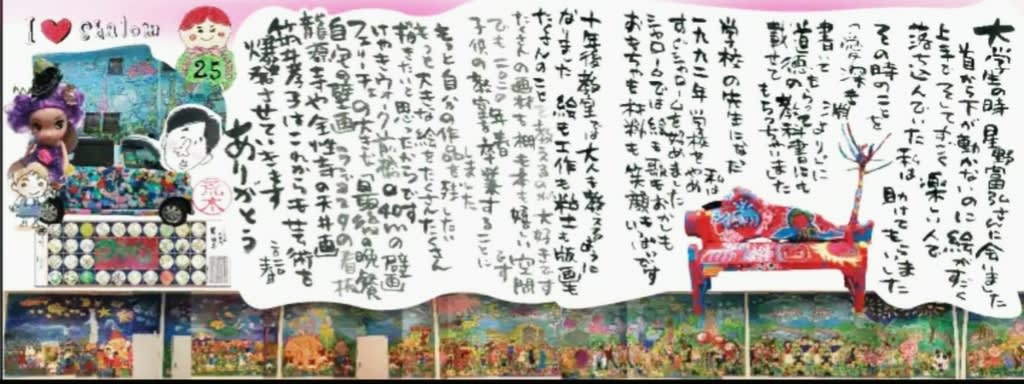 大学生の時 星野富弘さんに会いました
首から下が動かないのに絵がすごく
上手で そしてすごく楽しい人で
落ち込んでいた私は 助けてもらいました
その時のことを
書いてもらって
道徳の教科書にも
載せてもらっちゃいました
学校の先生になった私は
一九九二年 学校をやめ
すぐシャロームを始めました
シャロームでは絵も歌もおかしも
おもちゃも材料も笑顔もいっぱいです
十年後教室では大人も教えるように
なりました 絵も工作も粘土も版画も
たくさんのことを教えるのが大好きです
たくさんの画材も
でも 二〇二〇年春
子供の教室を卒業することに
しました
もっと自分の作品を残したい
もっと大きな絵をたくさんたくさん
描きたいと思ったからです
けやきウォーク前橋の40mの壁画
フェリーチェの大きな「最後の晩餐」
自宅の壁画
龍源寺や全性寺の天井画
これからも芸術を
爆発させていきます
ありがとう
I ♥ shalom
25
荒木